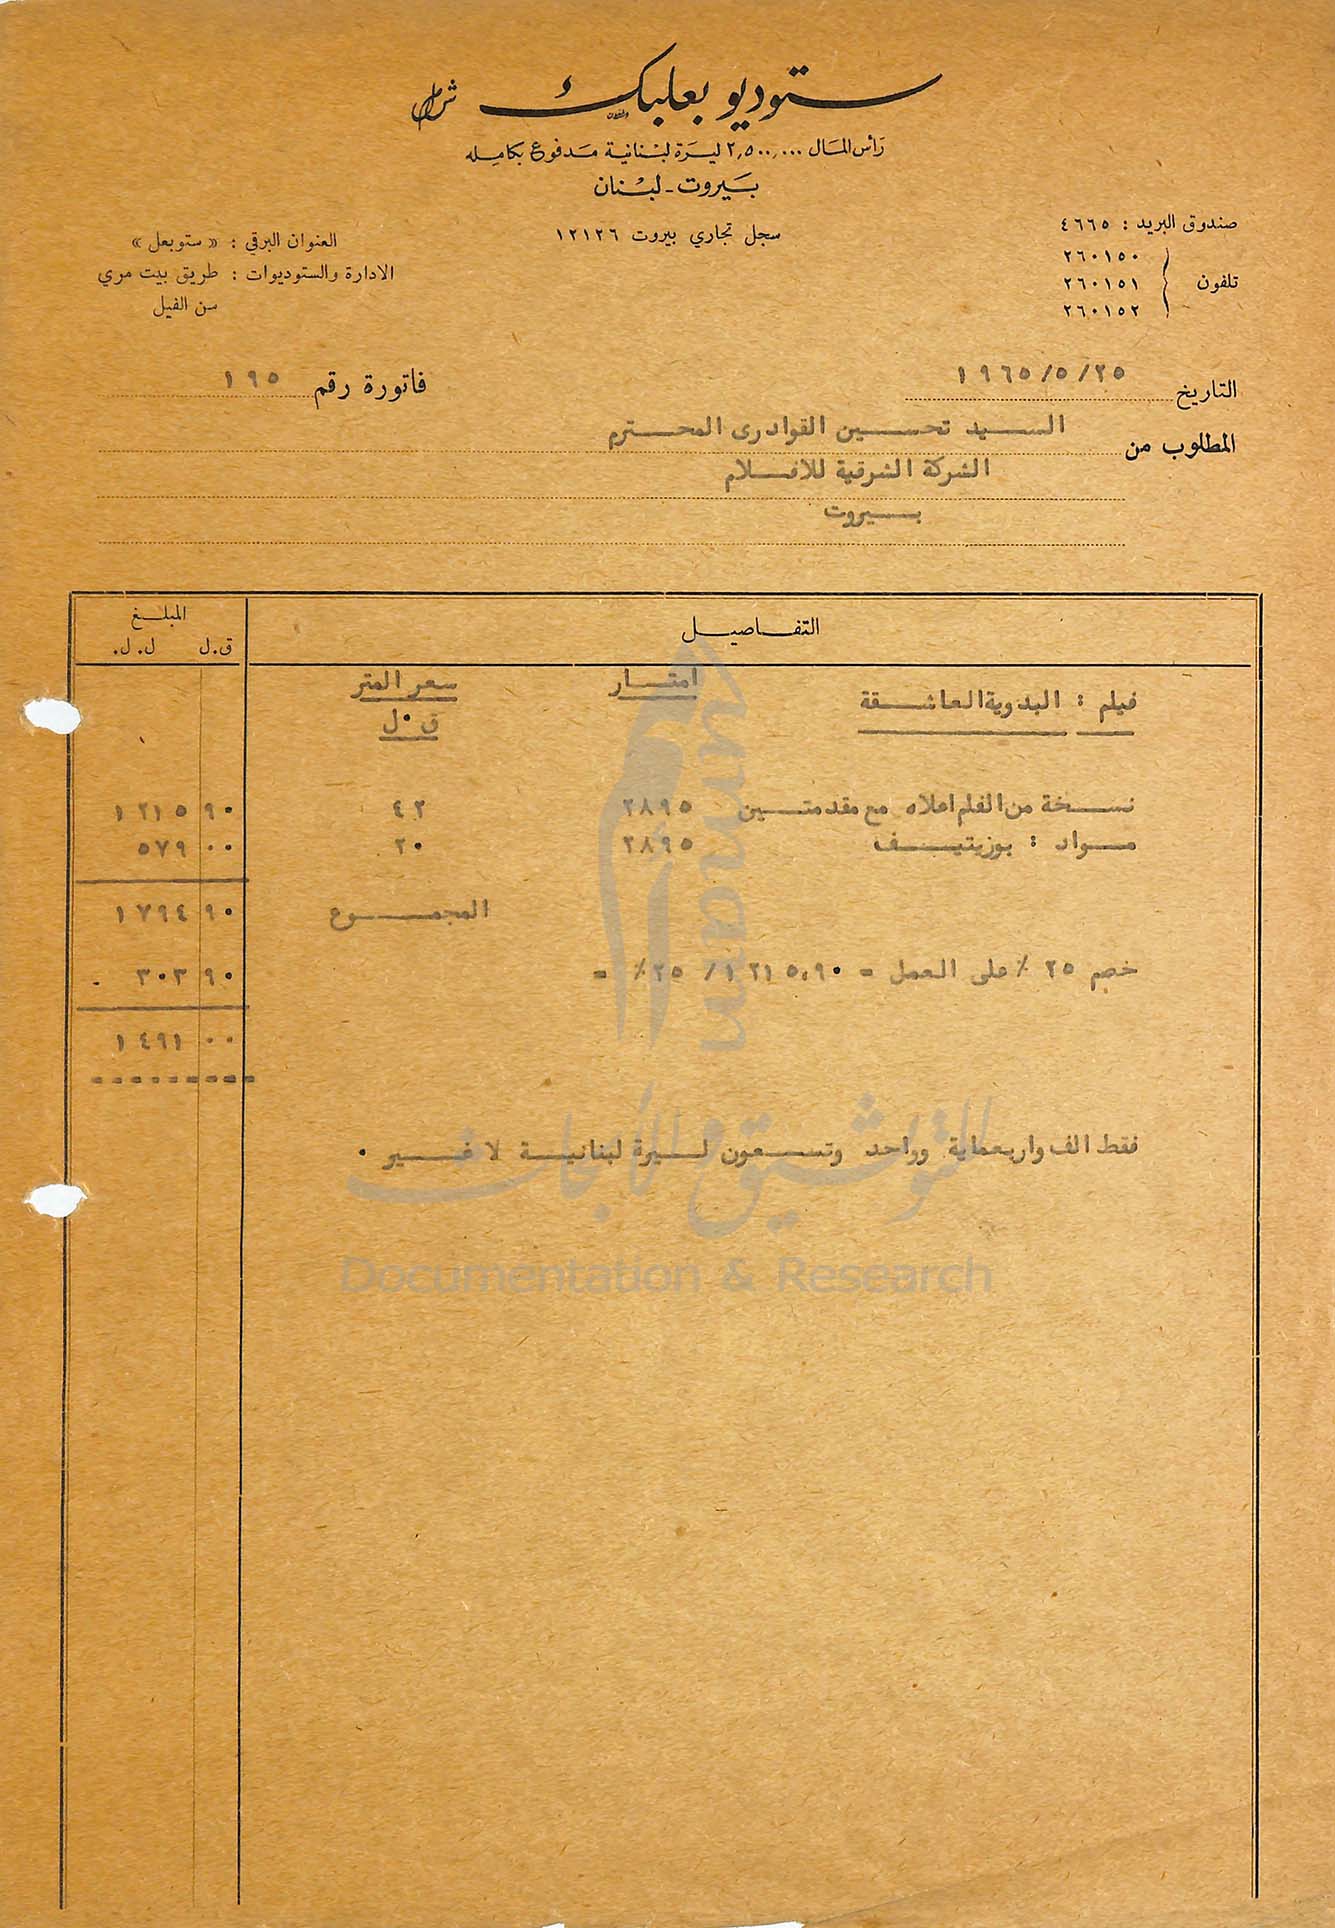 ستوديو بعلبك ش م ل
رأس المال ٢,٥٠٠,٠٠٠ ليرة لبنانية مدفوع بكامله
بيروت - لبنان
صندوق البريد : ٤٦٦٥
سجل تجاري بيروت ١٢١٢٦
العنوان البرقي : « ستوبعل »
تلفون ٢٦٠١٥٠
٢٦٠١٥١
٢٦٠١٥٢
الادارة والستوديوات : طريق بيت مري
سن الفيل
التاريخ ٢٥/٥/١٩٦٥
فاتورة رقم ١٩٥
المطلوب من السيد تحسين القوادرى المحترم
الشركة الشرقية للافلام
بيروت
التفاصيل المبلغ
ق.ل ل.ل.
فيلم : البدوية العاشقة امتار سعر المتر
ق.ل
نسخة من الفلم اعلاه مع مقدمتين ٢٨٩٥ ٤٢ ١٢١٥ ٩٠
مواد : بوزيتيف ٢٨٩٥ ٢٠ ٥٧٩ ٠٠
المجموع ١٧٩٤ ٩٠
خصم ٢٥ ٪ على العمل = ١٢١٥,٩٠ / ٢٥ ٪ = ٣٠٣ ٩٠
١٤٩١ ٠٠
فقط الف واربعماية وواحد وتسعون ليرة لبنانية لا غير .
umam
التوثيق والأبحاث
Documentation & Research